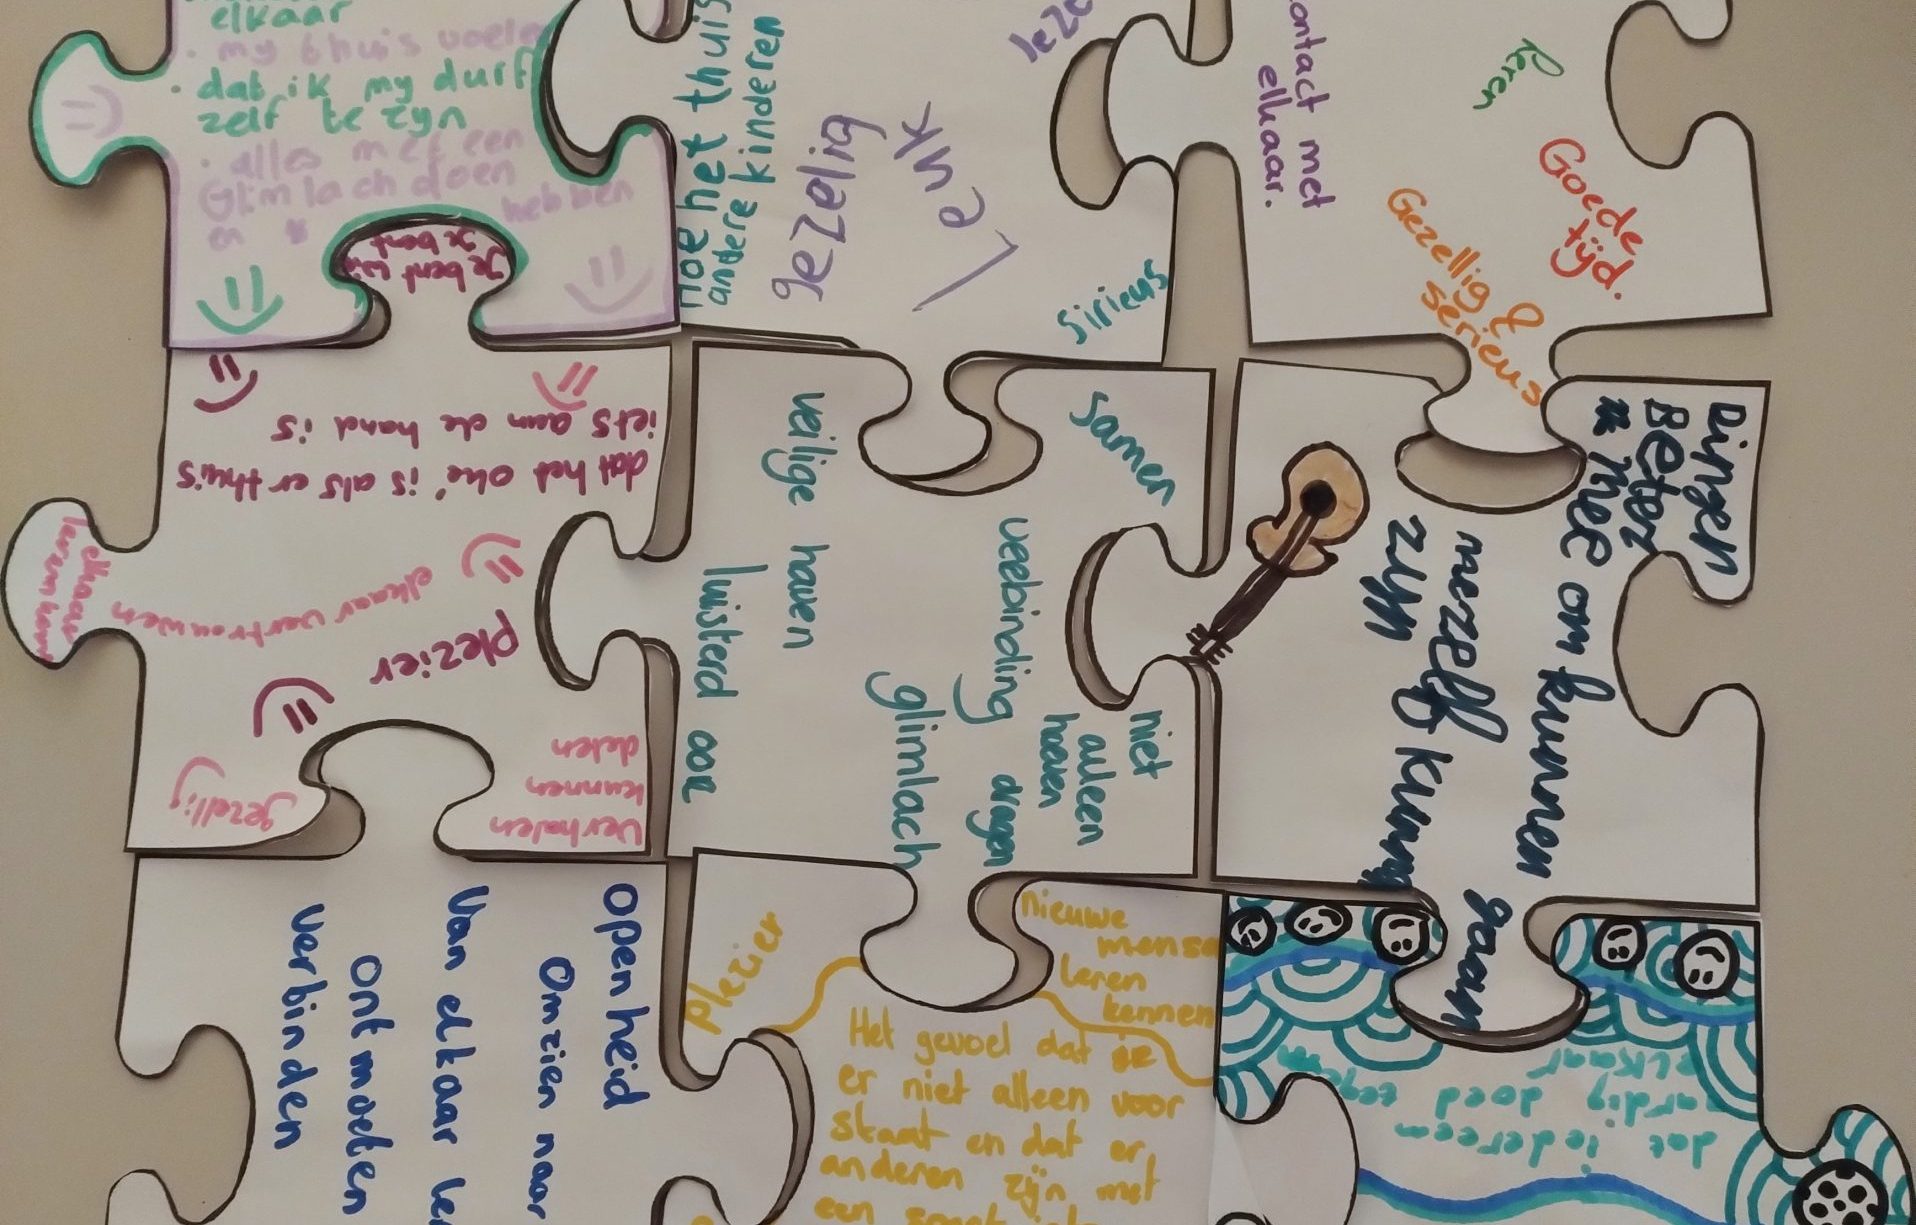 elkaar
· my thuis voelen
· dat ik my durf
zelf te zyn
· alles met een
Glimlach doen
hebben
je bent wie
je bent
Hoe het thuis
andere kinderen
gezellig
Leuk
Sirieus
contact met
elkaar.
leren
Goede
tijd.
Gezellig &
serieus
dat het oke is als er thuis
iets aan de hand is
elkaar vertrouwen
elkaar
leren kennen
plezier
gezellig
Verhalen
kunnen
delen
veilige haven
luisterd oor
Samen
verbinding
glimlach
niet
alleen
hoeven
dragen
Dingen
Beter
mee om kunnen
gaan
mezelf
zijn
Openheid
Omzien naar
Van elkaar
Ontmoeten
verbinden
plezier
nieuwe
mensen
leren
kennen
Het gevoel dat je
er niet alleen voor
staat en dat er
anderen zijn met
een
dat iedereen
aardig doed tegen
elkaar